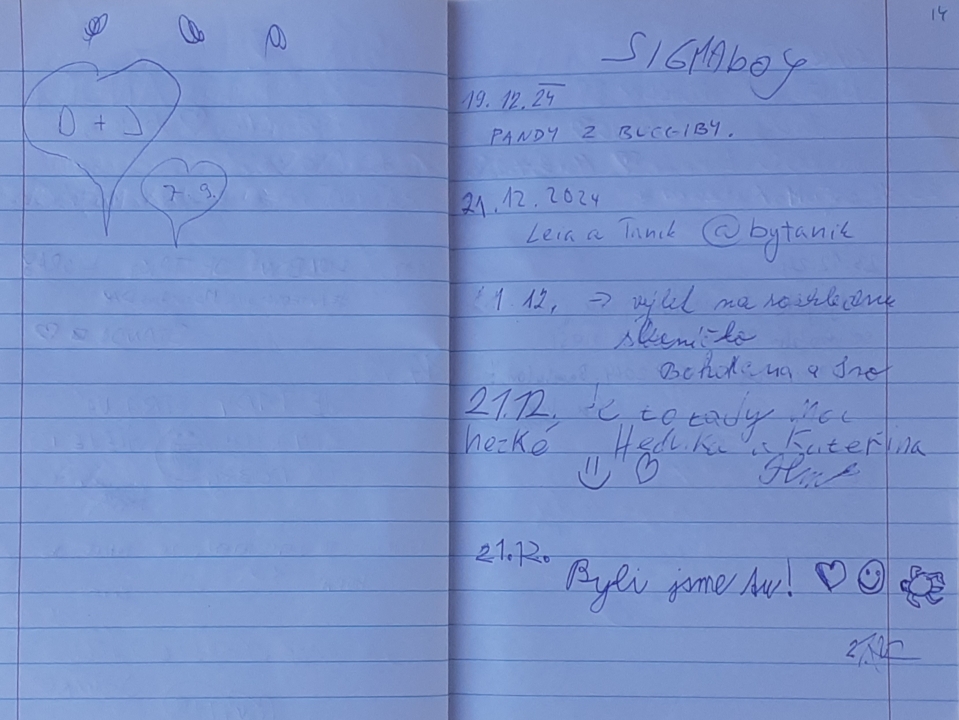 D + J
7. 9.
14
SIGMAboy
19. 12. 24
PANDY Z BUGGIBY.
21. 12. 2024
Leia a Tanik @bytanik
12. → výlet na rozhlednu
Bohdana a
21.12. Je to tady moc
hezké Hedvika a Kateřina
21.12.
Byli jsme tu!